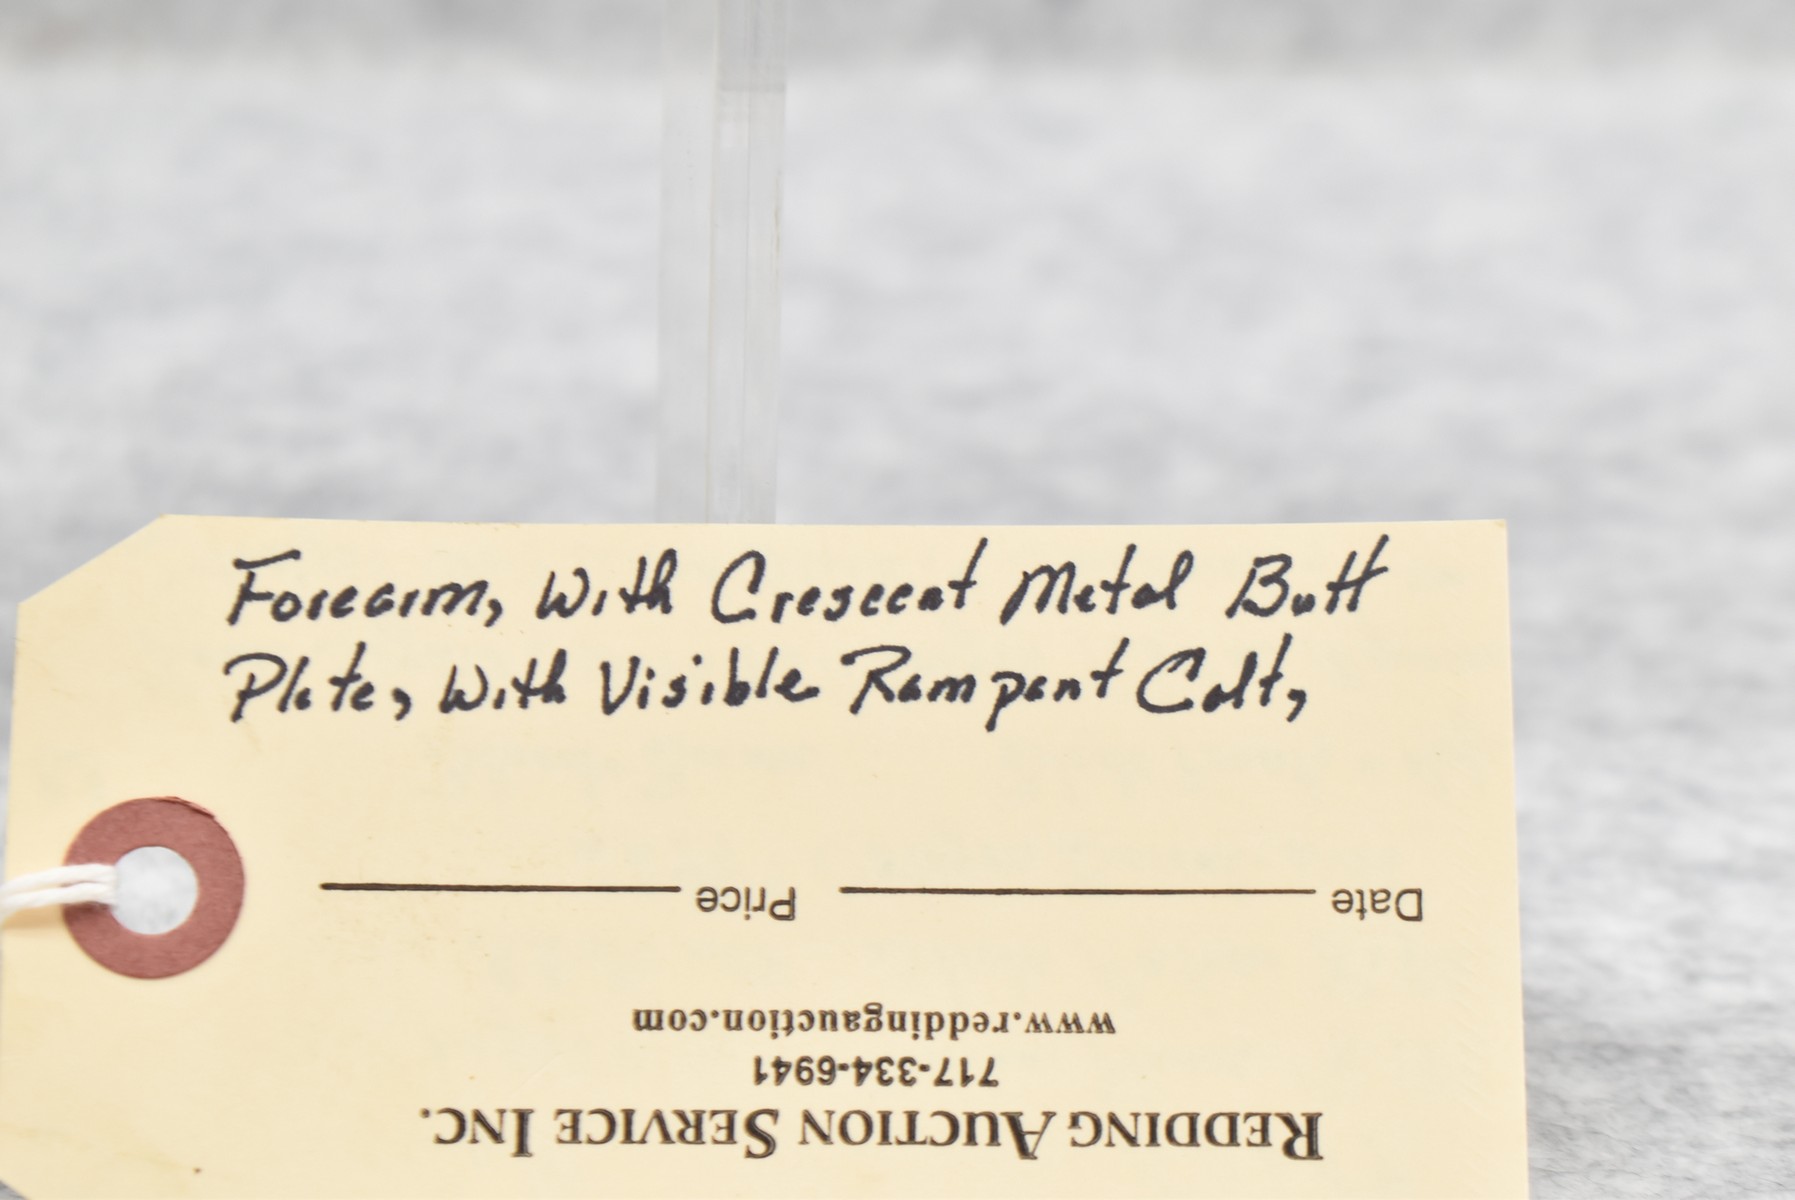 Forearm, With Crescent Metal Butt
Plate, With Visible Rampant Colt,
Date Price
www.reddingauction.com
717-334-6941
REDDING AUCTION SERVICE INC.